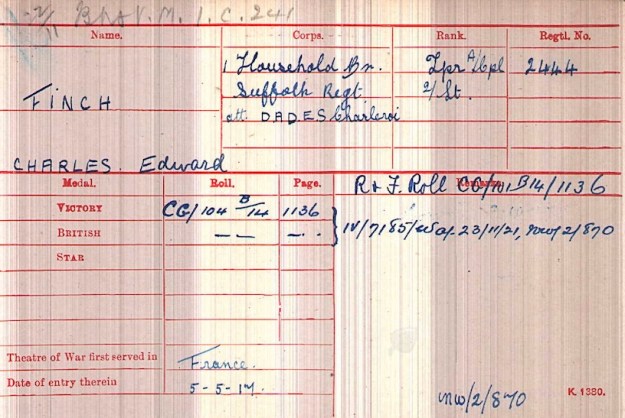 Br. & V. M. I. C. 241
Name. Corps. Rank. Regtl. No.
1 Household Bn. Tpr A/Cpl 2444
FINCH Suffolk Regt 2/Lt.
att DADES Charleroi
CHARLES. Edward
Medal. Roll. Page. R & F. Roll CG/101 B14/1136
VICTORY CG/104 B/14 1136
BRITISH — — — . IV/7185/ 23/11/21, NW/2/870
STAR
Theatre of War first served in France.
Date of entry therein 5-5-17.
NW/2/870 K. 1380.